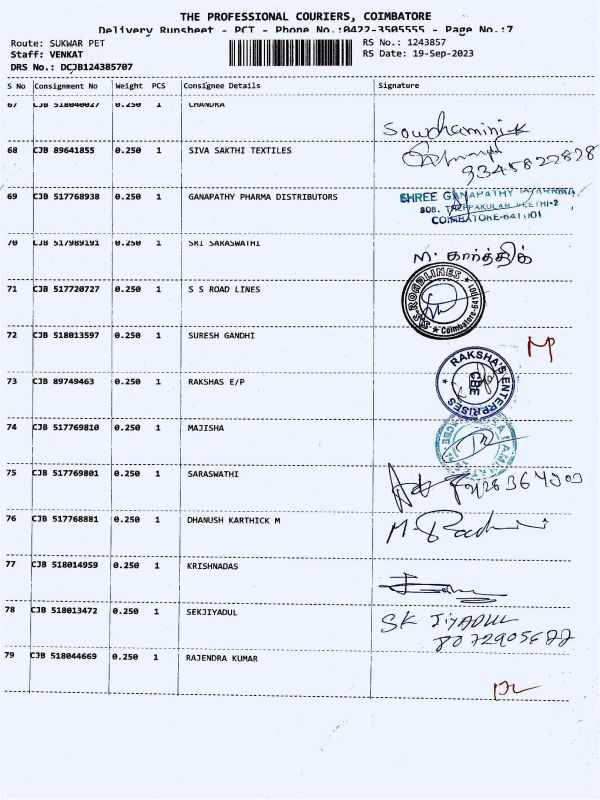 THE PROFESSIONAL COURIERS, COIMBATORE
Delivery Runsheet - PCT - Phone No.:0422-3505555 - Page No.:7
Route: SUKWAR PET
RS No.: 1243857
Staff: VENKAT
RS Date: 19-Sep-2023
DRS No.: DCJB124385707
S No Consignment No Weight PCS Consignee Details Signature
67 CJB 518040027 0.250 1 CHANDRA
Sowdhamini.k
68 CJB 89641855 0.250 1 SIVA SAKTHI TEXTILES
9345822828
69 CJB 517768938 0.250 1 GANAPATHY PHARMA DISTRIBUTORS
SHREE GANAPATHY
808, THEPPAKULAM VEETHI-2
COIMBATORE-641 001
70 CJB 517989191 0.250 1 SRI SARASWATHI
M. கார்த்திக்
71 CJB 517720727 0.250 1 S S ROAD LINES
S.S. ROADLINES ★ Coimbatore-641001 ★
72 CJB 518013597 0.250 1 SURESH GANDHI
73 CJB 89749463 0.250 1 RAKSHAS E/P
RAKSHA'S ENTERPRISES
CBE
74 CJB 517769810 0.250 1 MAJISHA
75 CJB 517769801 0.250 1 SARASWATHI
76 CJB 517768881 0.250 1 DHANUSH KARTHICK M
77 CJB 518014959 0.250 1 KRISHNADAS
78 CJB 518013472 0.250 1 SEKJIYADUL
SK JIYADUL
79 CJB 518044669 0.250 1 RAJENDRA KUMAR